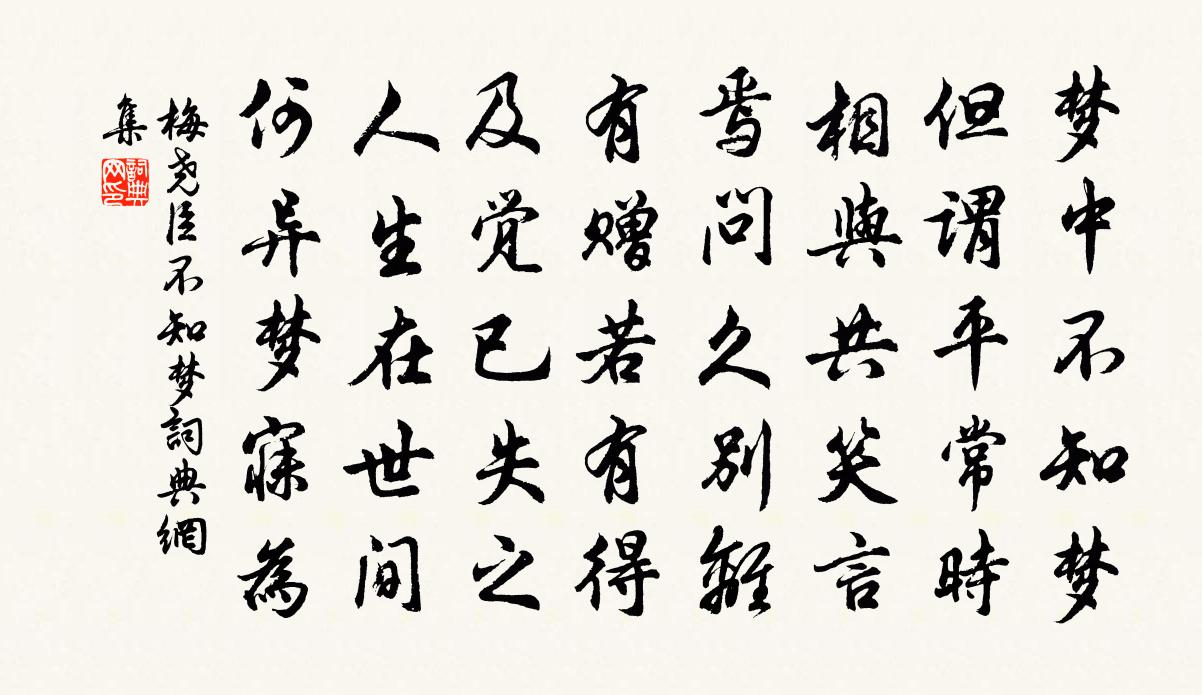 梦中不知梦
但谓平常時
相與共笑言
焉问久别離
有赠若有得
及觉已失之
人生在世间
何异梦寐為
梅尧臣不知梦詞典網
集
詞典
网印